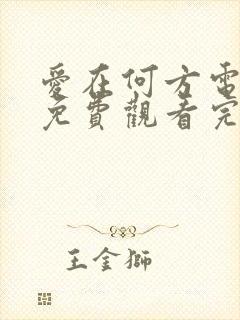 愛在何方電
免費觀看完
王金獅